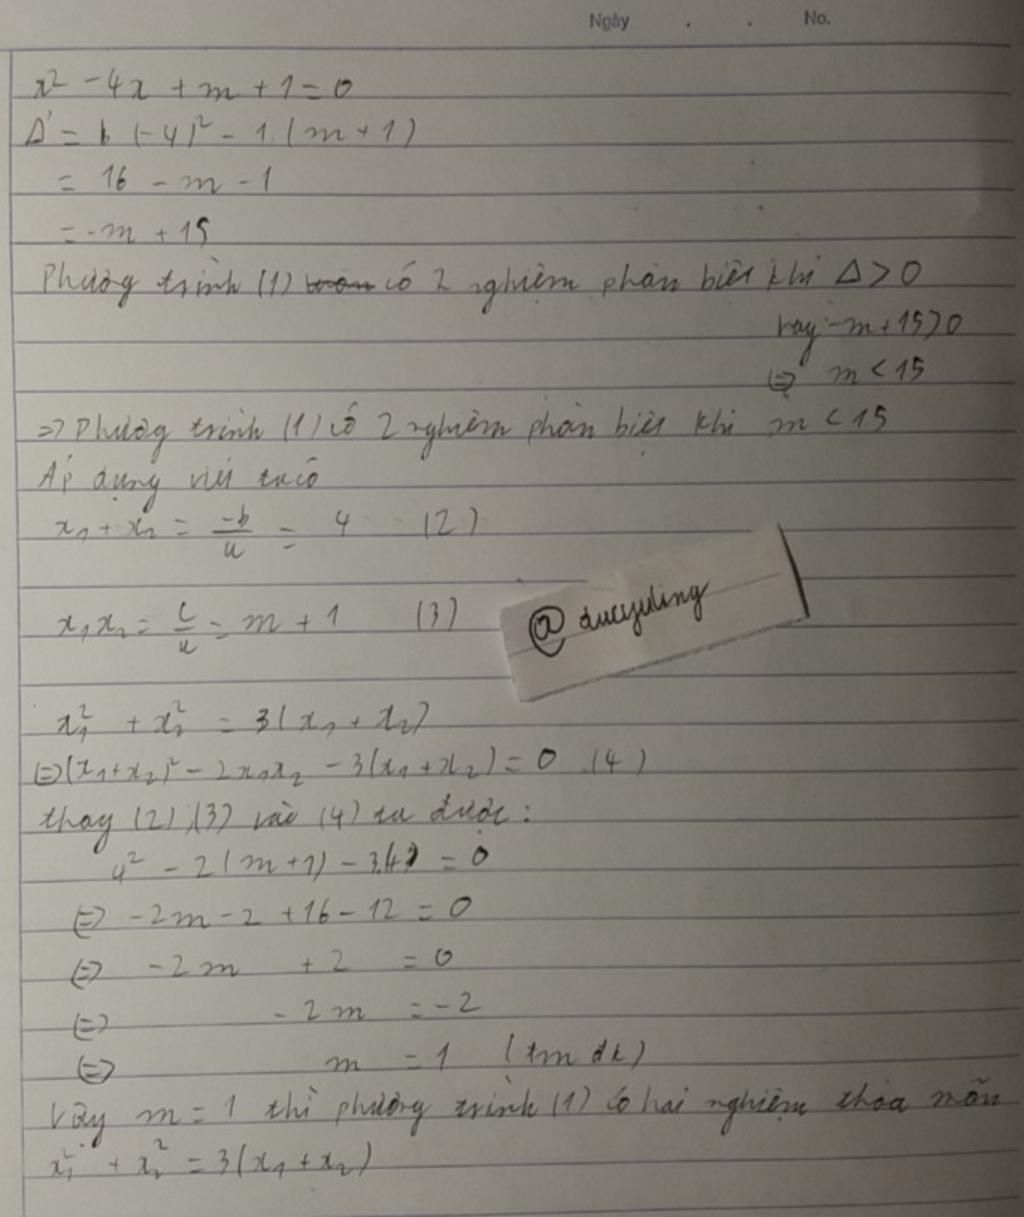 Ngày . . No.
x² - 4x + m + 1 = 0
Δ' = (-4)² - 1.(m + 1)
= 16 - m - 1
= -m + 15
Phương trình (1) có 2 nghiệm phân biệt khi Δ > 0
hay -m + 15 > 0
⇔ m < 15
=> Phương trình (1) có 2 nghiệm phân biệt khi m < 15
Áp dụng viét ta có
x₁ + x₂ = -b/a = 4 (2)
x₁x₂ = c/a = m + 1 (3)
@ducyuling
x₁² + x₂² = 3(x₁ + x₂)
⇔ (x₁+x₂)² - 2x₁x₂ - 3(x₁ + x₂) = 0 (4)
thay (2),(3) vào (4) ta được:
4² - 2(m+1) - 3.4 = 0
⇔ -2m - 2 + 16 - 12 = 0
⇔ -2m + 2 = 0
⇔ -2m = -2
⇔ m = 1 (tm đk)
Vậy m = 1 thì phương trình (1) có hai nghiệm thỏa mãn
x₁² + x₂² = 3(x₁ + x₂)